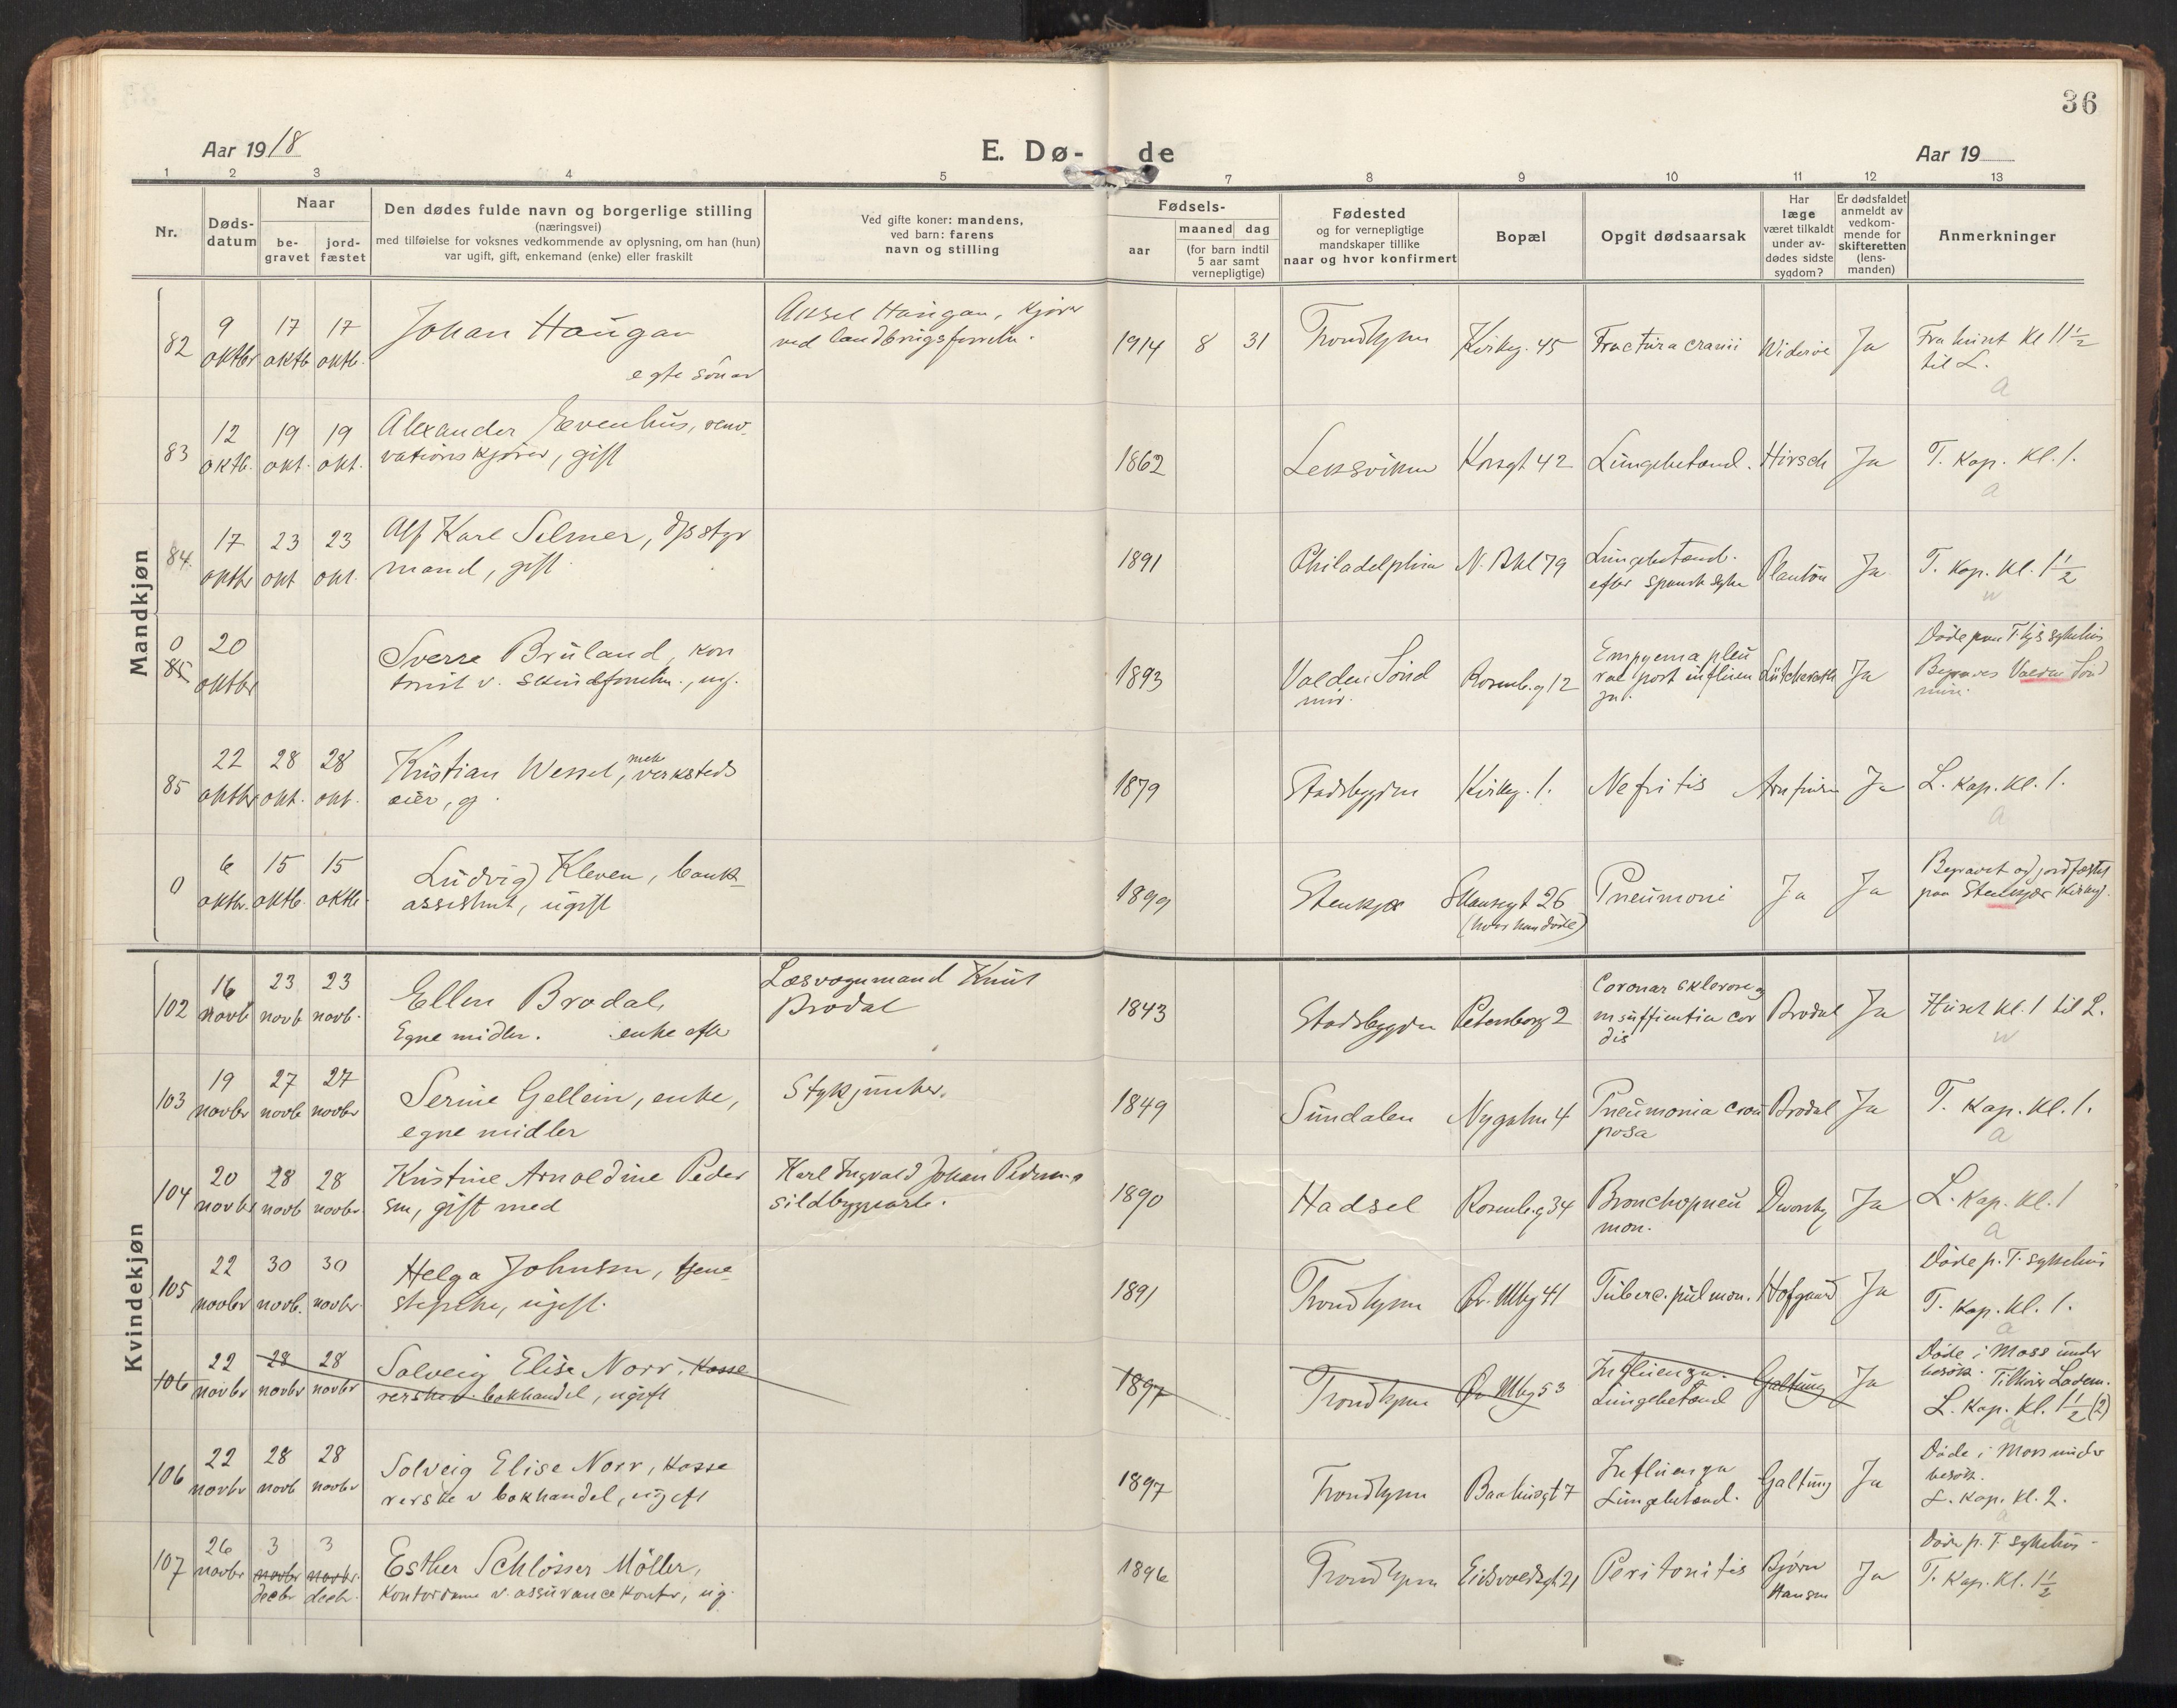 36
Aar 1918
E. Dø-
de
Aar 19
1 2 3 4 5 7 8 9 10 11 12 13
Nr.
Døds-
datum
Naar
be-
gravet
jord-
fæstet
Den dødes fulde navn og borgerlige stilling
(næringsvei)
med tilføielse for voksnes vedkommende av oplysning, om han (hun)
var ugift, gift, enkemand (enke) eller fraskilt
Ved gifte koner: mandens,
ved barn: farens
navn og stilling
Fødsels-
aar
maaned dag
(for barn indtil
5 aar samt
vernepligtige)
Fødested
og for vernepligtige
mandskaper tillike
naar og hvor konfirmert
Bopæl
Opgit dødsaarsak
Har
læge
været tilkaldt
under av-
dødes sidste
sygdom?
Er dødsfaldet
anmeldt av
vedkom-
mende for
skifteretten
(lens-
manden)
Anmerkninger
Mandkjøn
82
9
oktbr
17
oktb
17
oktb.
Johan Haugan
egte sön av
Aksel Haugan, kjører
ved landbrugsforretn.
1914 8 31
Trondhjem
Kirkeg. 45
Fractura cranii
Widerøe
Ja
Fra huset Kl 11½
til L.
a
83
12
oktb.
19
okt.
19
okt.
Alexander Evenhus, reno-
vationskjører, gift
1862
Leksviken
Korsgt 42
Lungebetænd.
Hirsch
Ja
T. Kap. Kl. 1.
a
84
17
oktbr
23
okt
23
okt.
Alf Karl Selmer, d/s styr
mand, gift
1891
Philadelphia
N. Bkl 79
Lungebetænd.
efter spansk syke
Ja
T. Kap. Kl. 1½
w
0
85
20
oktbr
Sverre Bruland, kon
torist v. skindforretn., ug.
1893
Volden Sönd
mör.
Rosenb.g 12
Empyema pleu
rae post influen
za.
Lütcherath
Ja
Döde paa T.hjs sykehus
Begraves Volden Sönd
möre.
85
22
oktbr
28
okt.
28
okt.
Kristian Wessel, mek
verksteds
eier, g.
1879
Stadsbygden
Kirkeg. 1.
Nefritis
Arnfinsen
Ja
L. Kap. Kl. 1.
a
0
6
oktbr.
15
oktb.
15
oktb.
Ludvig Kleven, bank-
assistent, ugift
1899
Stenkjær
Skansegt 26
(hvor han döde)
Pneumoni
Ja
Ja
Begravet og jordfæstet
paa Stenkjær Kirkeg.
Kvindekjøn
102
16
novb
23
novb
23
novb.
Ellen Brodal,
Egne midler. enke efter
Læsvognmand Knut
Brodal
1843
Stadsbygden
Petersborg 2
Coronar sklerose og
insuffientia cor
dis
Brodal
Ja
Huset Kl. 1 til L.
w
103
19
novbr
27
novb
27
novbr
Serine Gellein, enke,
egne midler
Stykjunker.
1849
Sundalen
Nygahn 4
Pneumonia crou
posa
Brodal
Ja
T. Kap. Kl. 1.
a
104
20
novbr
28
novb
28
novbr
Kristine Arnoldine Peder
sen, gift med
Karl Ingvald Johan Pedersen
1890
Hadsel
Rosenb.g 34
Bronchopneu
mon.
Ja
L. Kap. Kl. 1
a
105
22
novbr
30
novb.
30
novbr.
Helga Johnsen, tjene
stepike, ugift.
1891
Trondhjem
Öv. Mbg 41
Tuberc. pulmon.
Hofgaard
Ja
Döde p. T. sykehus
T. Kap. Kl. 1.
a
106
22
novbr
28
novbr
28
novbr
Solveig Elise Norr, Kasse
rerske v bokhandel, ugift
1897
Trondhjem
Öv Mbg 53
Influenza.
Lungebetænd
Galtung
Ja
Döde i Moss under
besök. Tilhörer Ladem.
L. Kap. Kl. 1½ (2)
a
106
22
novbr
28
novb
28
novbr
Solveig Elise Norr, Kasse
rerske v bokhandel, ugift
1897
Trondhjem
Baahusgt 7
Influenza
Lungebetænd.
Galtung
Ja
Döde i Moss under
besök.
L. Kap. Kl. 2.
a
107
26
novbr
3
novbr
decbr
3
novbr.
decbr.
Esther Schlösser Möller,
Kontordame v. assurancekontor, ug.
1896
Trondhjem
Eidsvoldsgt 21
Peritonitis
Bjørn
Hansen
Ja
Döde p. T. sykehus-
T. Kap. Kl. 1½